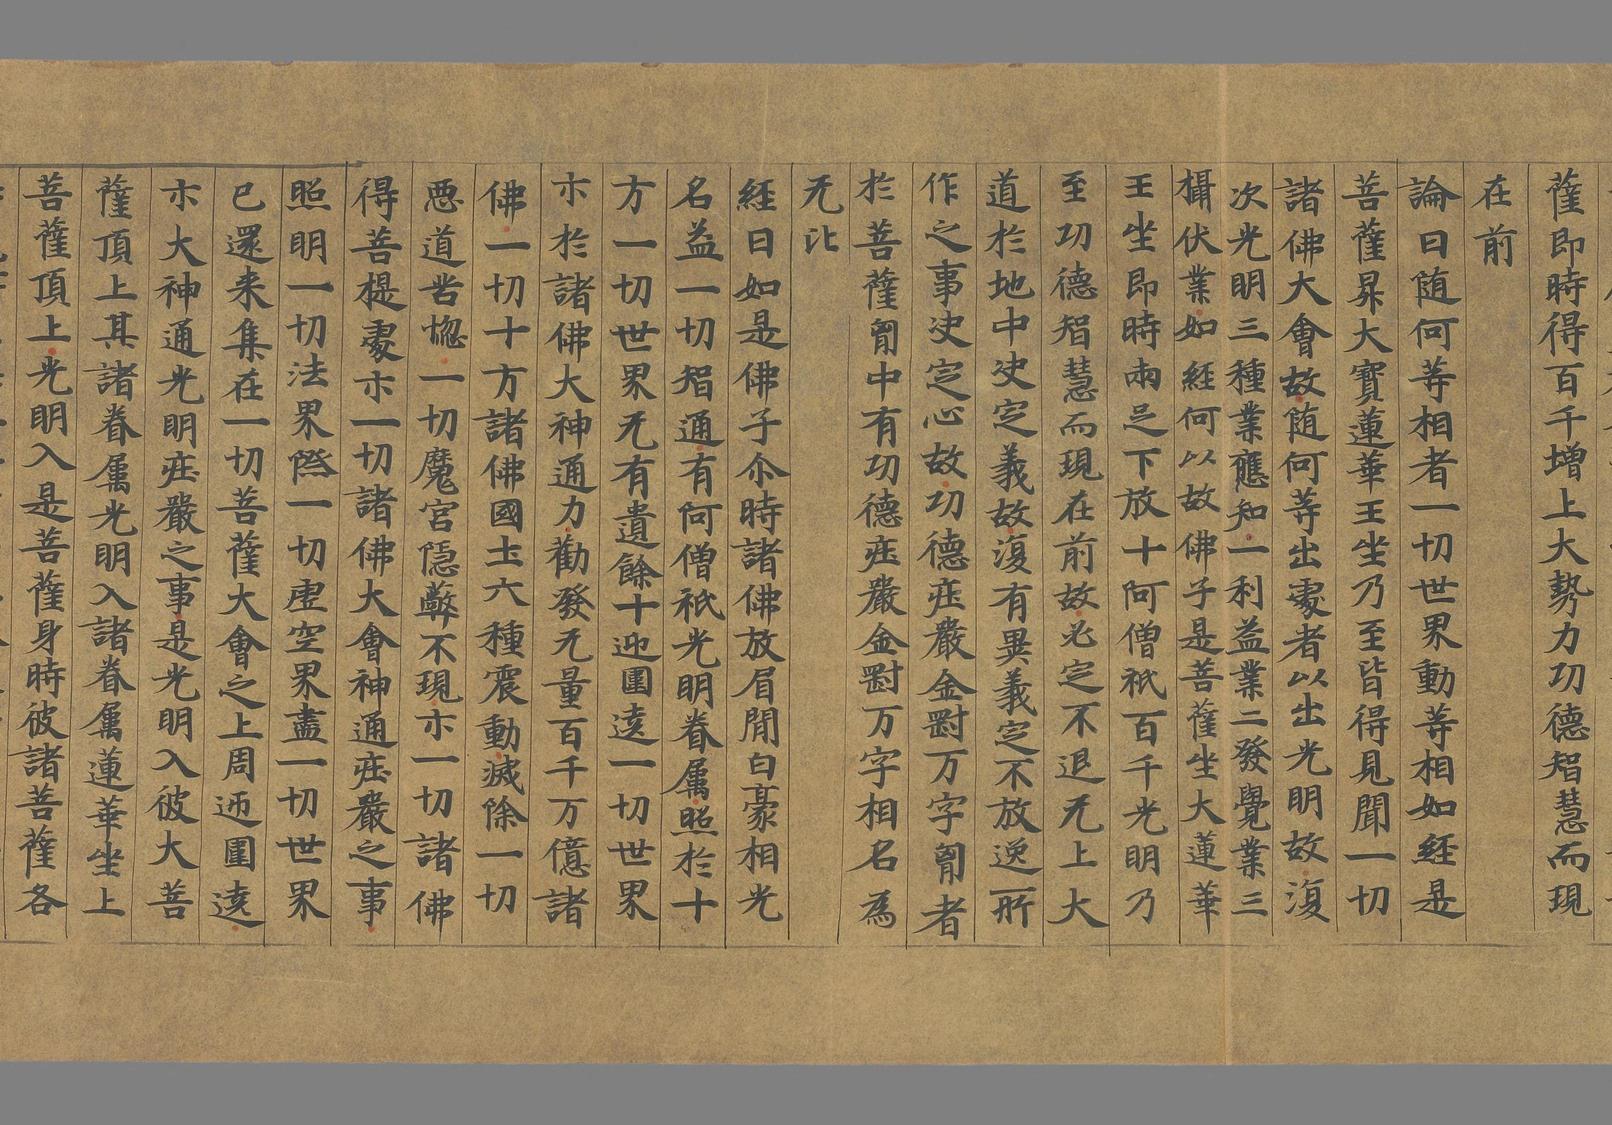 薩即時得百千增上大勢力功德智慧而現
在前
論曰随何等相者一切世界動等相如經是
菩薩昇大寶蓮華王坐乃至皆得見聞一切
諸佛大會故随何等出處者以出光明故復
次光明三種業應知一利益業二發覺業三
攝伏業如經何以故佛子是菩薩坐大蓮華
王坐即時兩足下放十阿僧祇百千光明乃
至功德智慧而現在前故必定不退无上大
道於地中决定義故復有異義定不放逸所
作之事决定心故功德莊嚴金罰万字胷者
於菩薩胷中有功德莊嚴金罰万字相名為
无比
經曰如是佛子尒時諸佛放眉間白豪相光
名益一切智通有何僧祇光明眷属照於十
方一切世界无有遺餘十迊圍遶一切世界
亦於諸佛大神通力勸發无量百千万億諸
佛一切十方諸佛國土六種震動滅除一切
惡道苦惱一切魔宮隱蔽不現亦一切諸佛
得菩提處亦一切諸佛大會神通莊嚴之事
照明一切法界際一切虛空界盡一切世界
已還来集在一切菩薩大會之上周迊圍遶
亦大神通光明莊嚴之事是光明入彼大菩
薩頂上其諸眷属光明入諸眷属蓮華坐上
菩薩頂上光明入是菩薩身時彼諸菩薩各